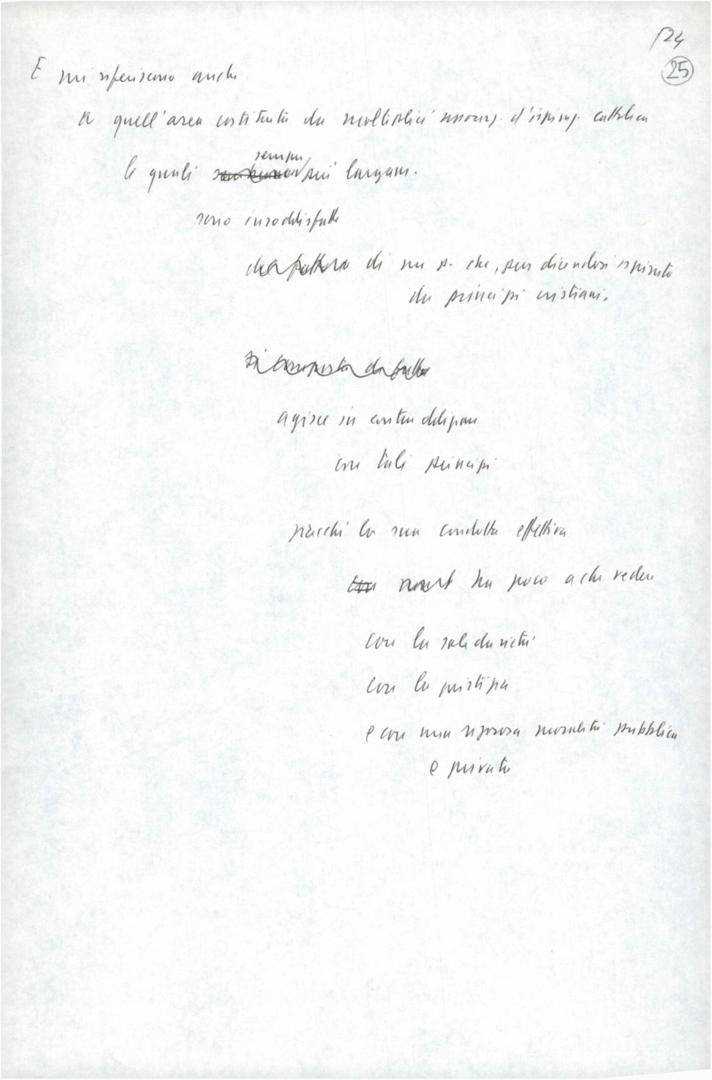 524
25
E mi riferiscono anche
a quell'area costituita da molteplici d'ispiraz. cattolica
le quali sempre più largam.
sono insoddisfatte
di un p. che, pur dicendosi ispirato
da principi cristiani,
agisce in contraddizione
con tali principi
giacché la sua condotta effettiva
ha poco a che vedere
con la solidarietà
con la giustizia
e con una rigorosa moralità pubblica
e privata